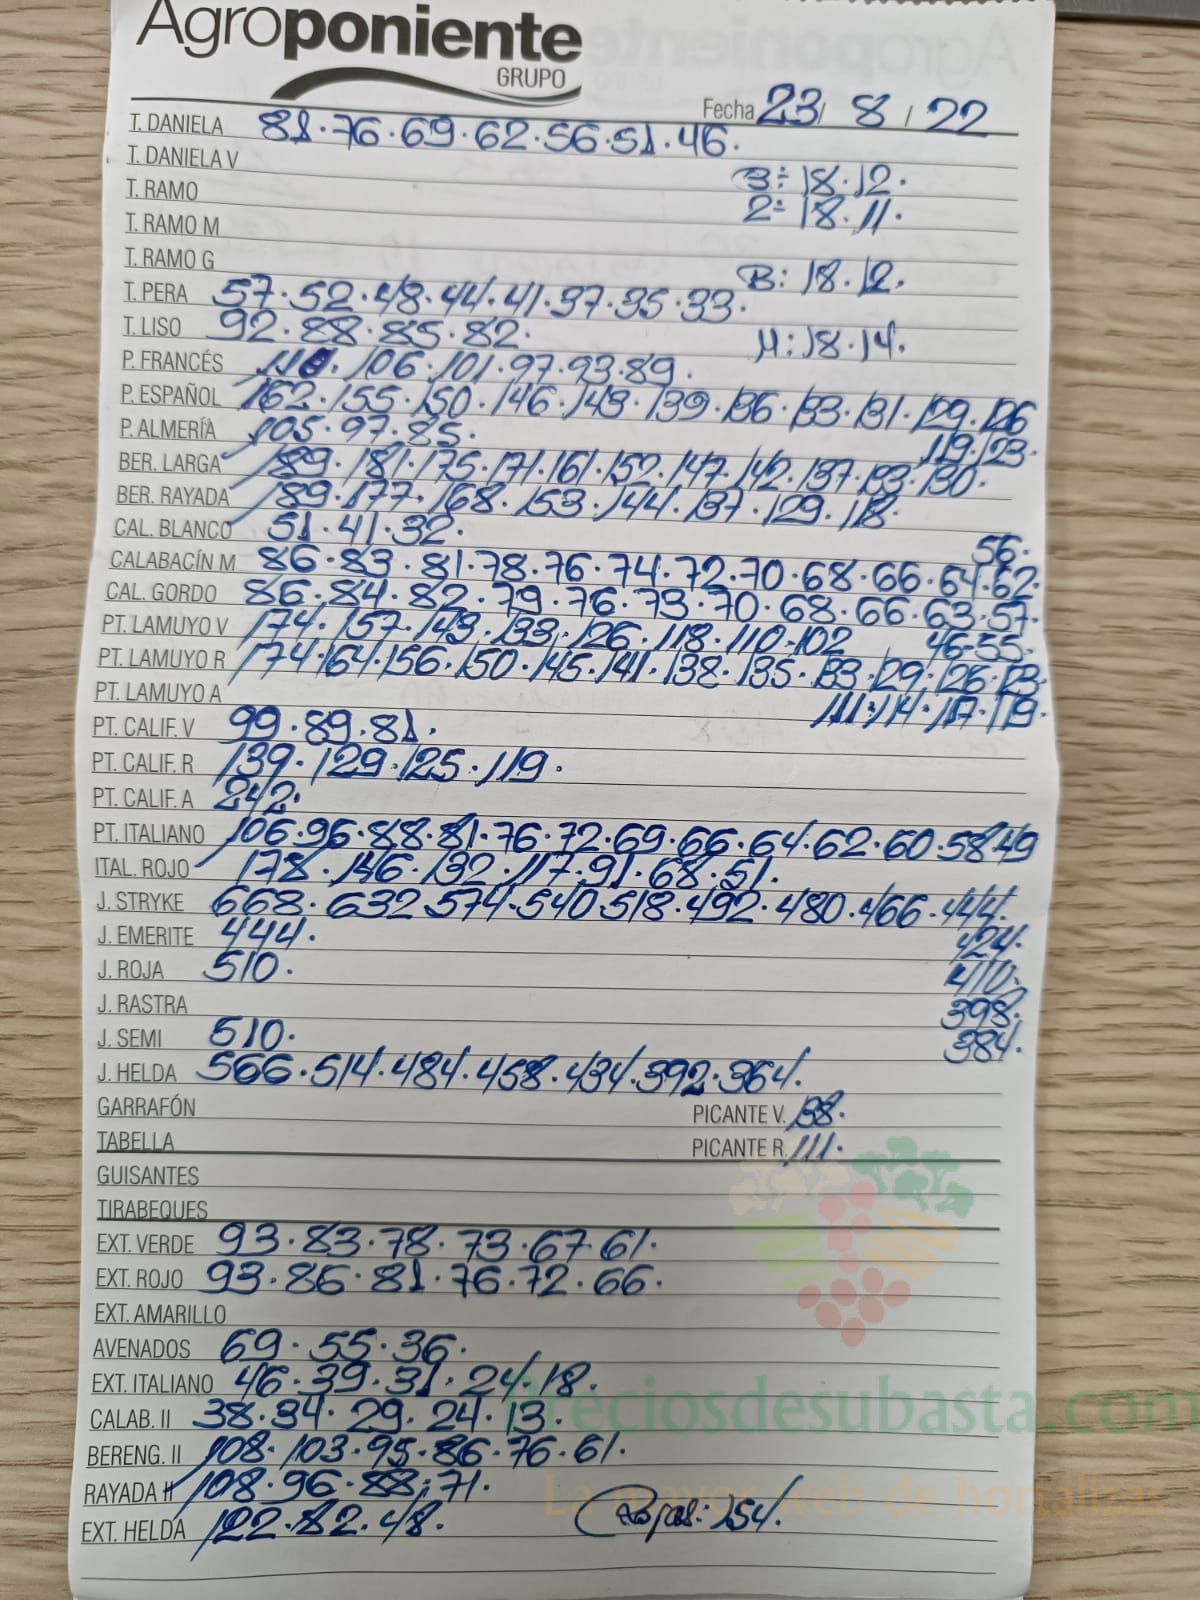 Agroponiente
GRUPO
Fecha 23/ 8 / 22
T. DANELA 81·76·69·62·56·51·46.
T. DANIELA V 3ª: 18·12.
T. RAMO 2ª 18·11.
T. RAMO M
T. RAMO G B: 18·12.
T. PERA 57·52·48·44·41·37·35·33.
T. LISO 92·88·85·82. M: 18·14.
P. FRANCÉS 106·101·97·93·89.
P. ESPAÑOL 162·155·150·146·143·139·136·133·131·129·126
119·123.
P. ALMERÍA 105·97·85.
BER. LARGA 189·181·175·171·161·152·147·142·137·133·130.
BER. RAYADA 189·177·168·153·144·137·129·118.
CAL. BLANCO 51·41·32.
56.
CALABACÍN M 86·83·81·78·76·74·72·70·68·66·64·62.
CAL. GORDO 86·84·82·79·76·73·70·68·66·63·57.
46-55.
PT. LAMUYO V 174·157·143·133·126·118·110·102
PT. LAMUYO R 174·164·156·150·145·141·138·135·133·129·126·123.
PT. LAMUYO A 111·114·117·119.
PT. CALIF. V 99·89·81.
PT. CALIF. R 139·129·125·119.
PT. CALIF. A 242.
PT. ITALIANO 106·96·88·81·76·72·69·66·64·62·60·58·49
ITAL. ROJO 178·146·132·117·91·68·51.
J. STRYKE 668·632·574·540·518·492·480·466·444.
J. EMERITE 444. 424.
J. ROJA 510. 410.
J. RASTRA 398.
J. SEMI 510. 384.
J. HELDA 566·514·484·458·434·392·364.
GARRAFÓN PICANTE V. 138.
TABELLA PICANTE R. 111.
GUISANTES
TIRABEQUES
EXT. VERDE 93·83·78·73·67·61.
EXT. ROJO 93·86·81·76·72·66.
EXT. AMARILLO
AVENADOS 69·55·36.
EXT. ITALIANO 46·39·31·24·18.
Preciosdesubasta.com
CALAB. II 38·34·29·24·13.
BERENG. II 108·103·95·86·76·61.
RAYADA II 108·96·88·71.
La mayor web de hortalizas
EXT. HELDA 122·82·48. Rojas: 254.